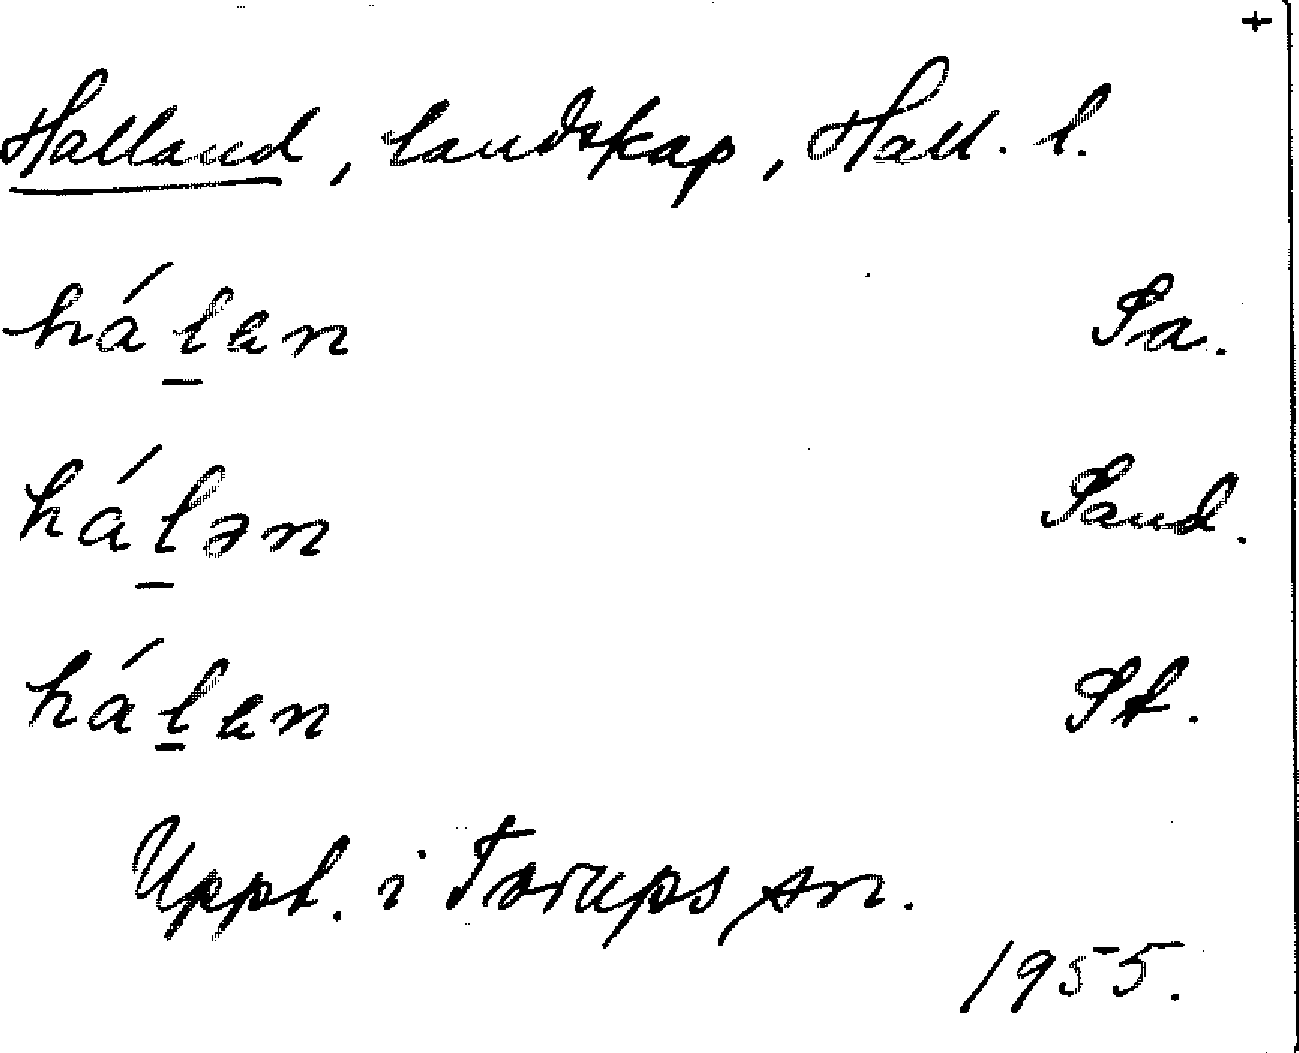 +
Halland, landskap, Hall. l.
há̱lan Sa.
hálən Sand.
hálan St.
Uppt. i Torups sn.
1955.